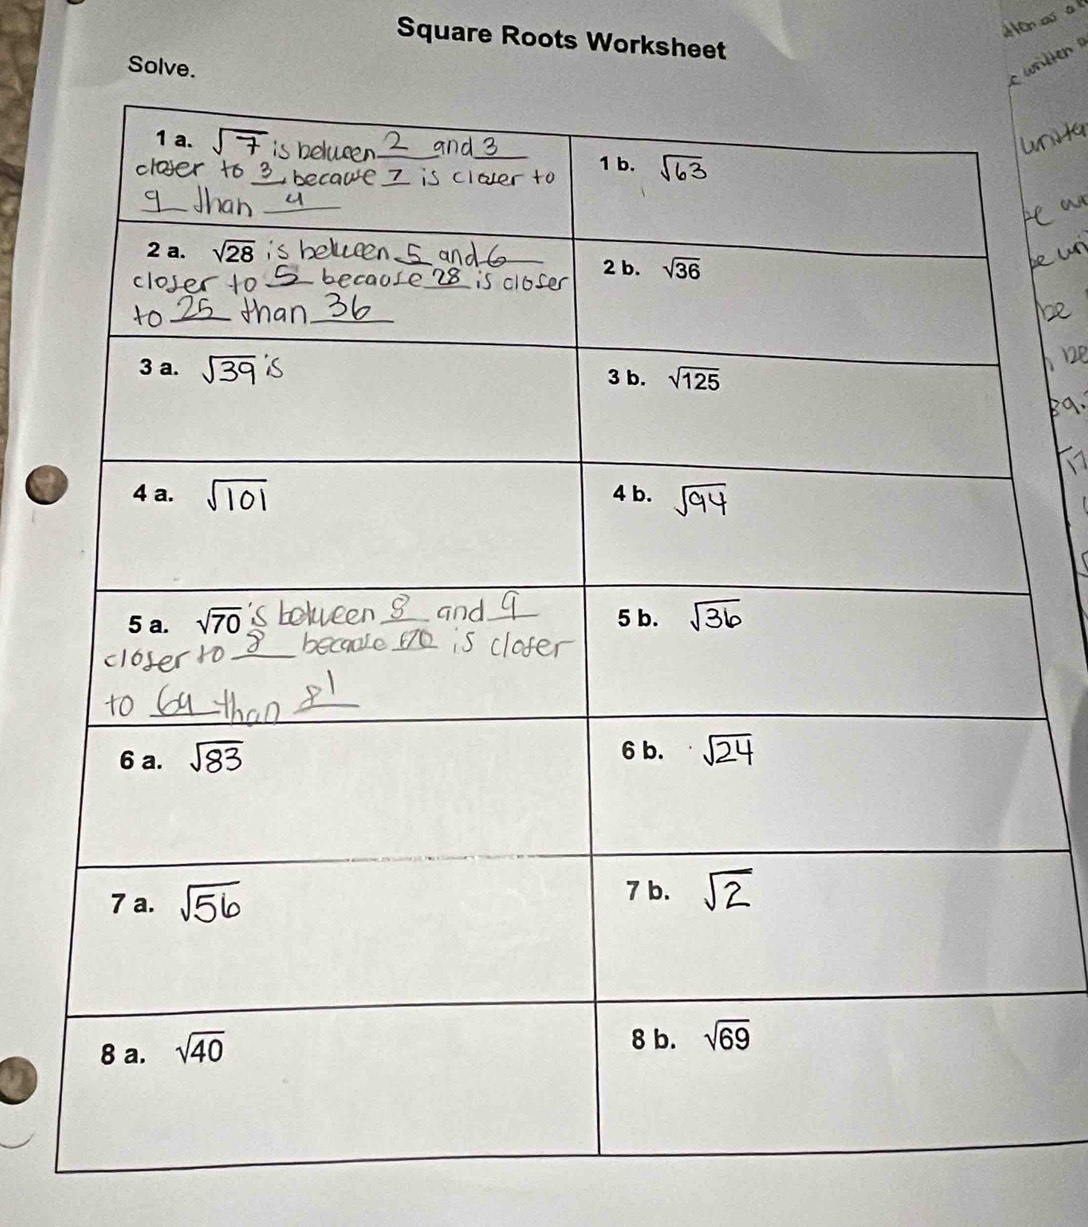 Square Roots Worksheet
Solve.
1 a. √7 is between 2 and 3
closer to 3, because 7 is closer to
9 than 4
1 b. √63
2 a. √28 is between 5 and 6
closer to 5 because 28 is closer
to 25 than 36
2 b. √36
3 a. √39 is
3 b. √125
4 a. √101
4 b. √94
5 a. √70 is between 8 and 9
closer to 8 because 70 is closer
to 64 than 81
5 b. √36
6 a. √83
6 b. √24
7 a. √56
7 b. √2
8 a. √40
8 b. √69
written a
be